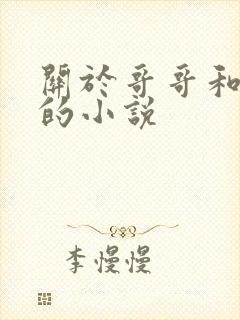 關於哥哥和
的小說
李慢慢